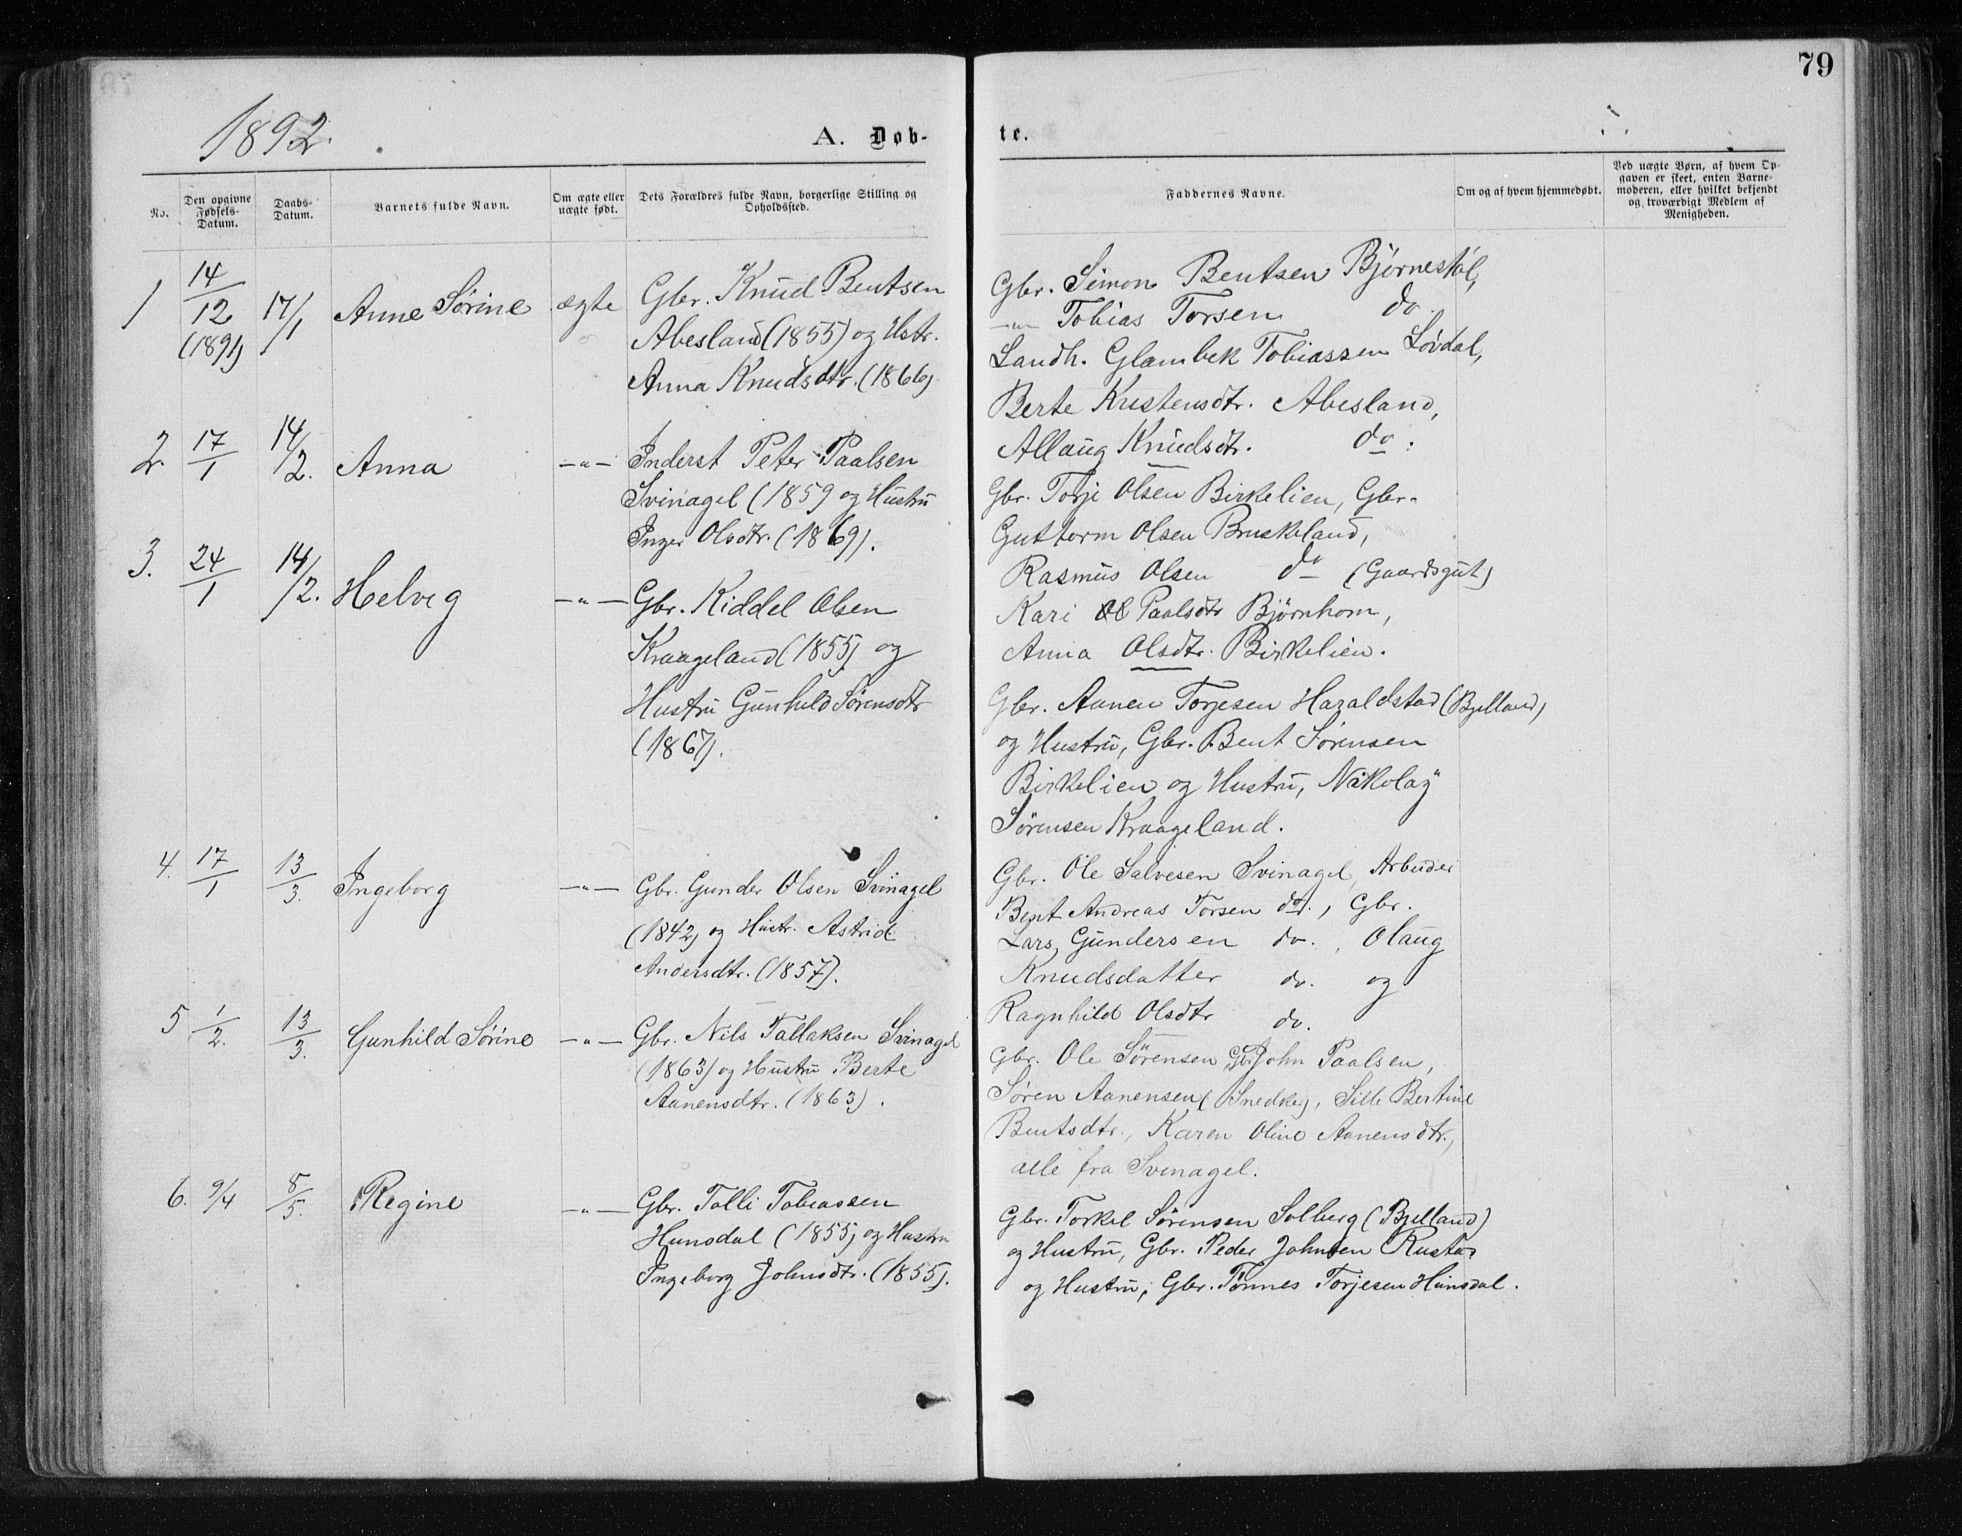 79
1892.
A. Døb-
te.
No.
Den opgivne Fødsels-Datum.
Daabs-Datum.
Barnets fulde Navn.
Om ægte eller uægte født.
Dets Forældres fulde Navn, borgerlige Stilling og Opholdssted.
Faddernes Navne.
Om og af hvem hjemmedøbt.
Ved uægte Børn, af hvem Op-
gaven er skeet, enten Barne-
moderen, eller hvilket bekjendt
og troværdigt Medlem af
Menigheden.
1 14/12 (1891) 17/1 Anne Sørine ægte Gbr. Knud Bentsen
Abesland (1855) og Hstr.
Anna Knudsdtr. (1866).
Gbr. Simon Bentsen Bjørnestøl,
—"— Tobias Torsen do
Landh. Glambek Tobiassen Løvdal,
Berte Kristensdtr. Abesland,
Allaug Knudsdtr. do.
2. 17/1 14/2. Anna —"— Inderst Peter Paalsen
Svinagel (1859 og Hustru
Inger Olsdtr. (1869).
Gbr. Torje Olsen Birkelien, Gbr.
Guttorm Olsen Bruskeland,
Rasmus Olsen do (Gaardsgut)
Kari Paalsdtr Bjørnhom,
Anna Olsdtr. Birkelien.
3. 24/1 14/2. Helveg —"— Gbr. Kiddel Olsen
Kraageland (1855) og
Hustru Gunhild Sørensdtr
(1867).
Gbr. Aanen Torjesen Haraldstad (Bjelland)
og Hustru, Gbr. Bent Sørensen
Birkelien og Hustru, Nikolay
Sørensen Kraageland.
4. 17/1 13/3. Ingeborg —"— Gbr. Gunder Olsen Svinagel
(1842) og Hustr. Astrid
Andersdtr. (1857).
Gbr. Ole Salvesen Svinagel, Arbeider
Bent Andreas Torsen do., Gbr.
Lars Gundersen do., Olaug
Knudsdatter do. og
Ragnhild Olsdtr do.
5 1/2. 13/3. Gunhild Sørine —"— Gbr. Nils Tallaksen Svinagel
(1863) og Hustru Berte
Aanensdtr. (1863).
Gbr. Ole Sørensen, Gbr John Paalsen,
Søren Aanensen (Snedker), Sille Bertine
Bentsdtr., Karen Oline Aanensdtr.,
alle fra Svinagel.
6. 9/4 8/5. Regine —"— Gbr. Tolli Tobiassen
Hunsdal (1855) og Hustru
Ingeborg Johnsdtr. (1855).
Gbr. Torkel Sørensen Solberg (Bjelland)
og Hustru, Gbr. Peder Johnsen Rustad
og Hustru, Gbr. Tønnes Torjesen Hunsdal.